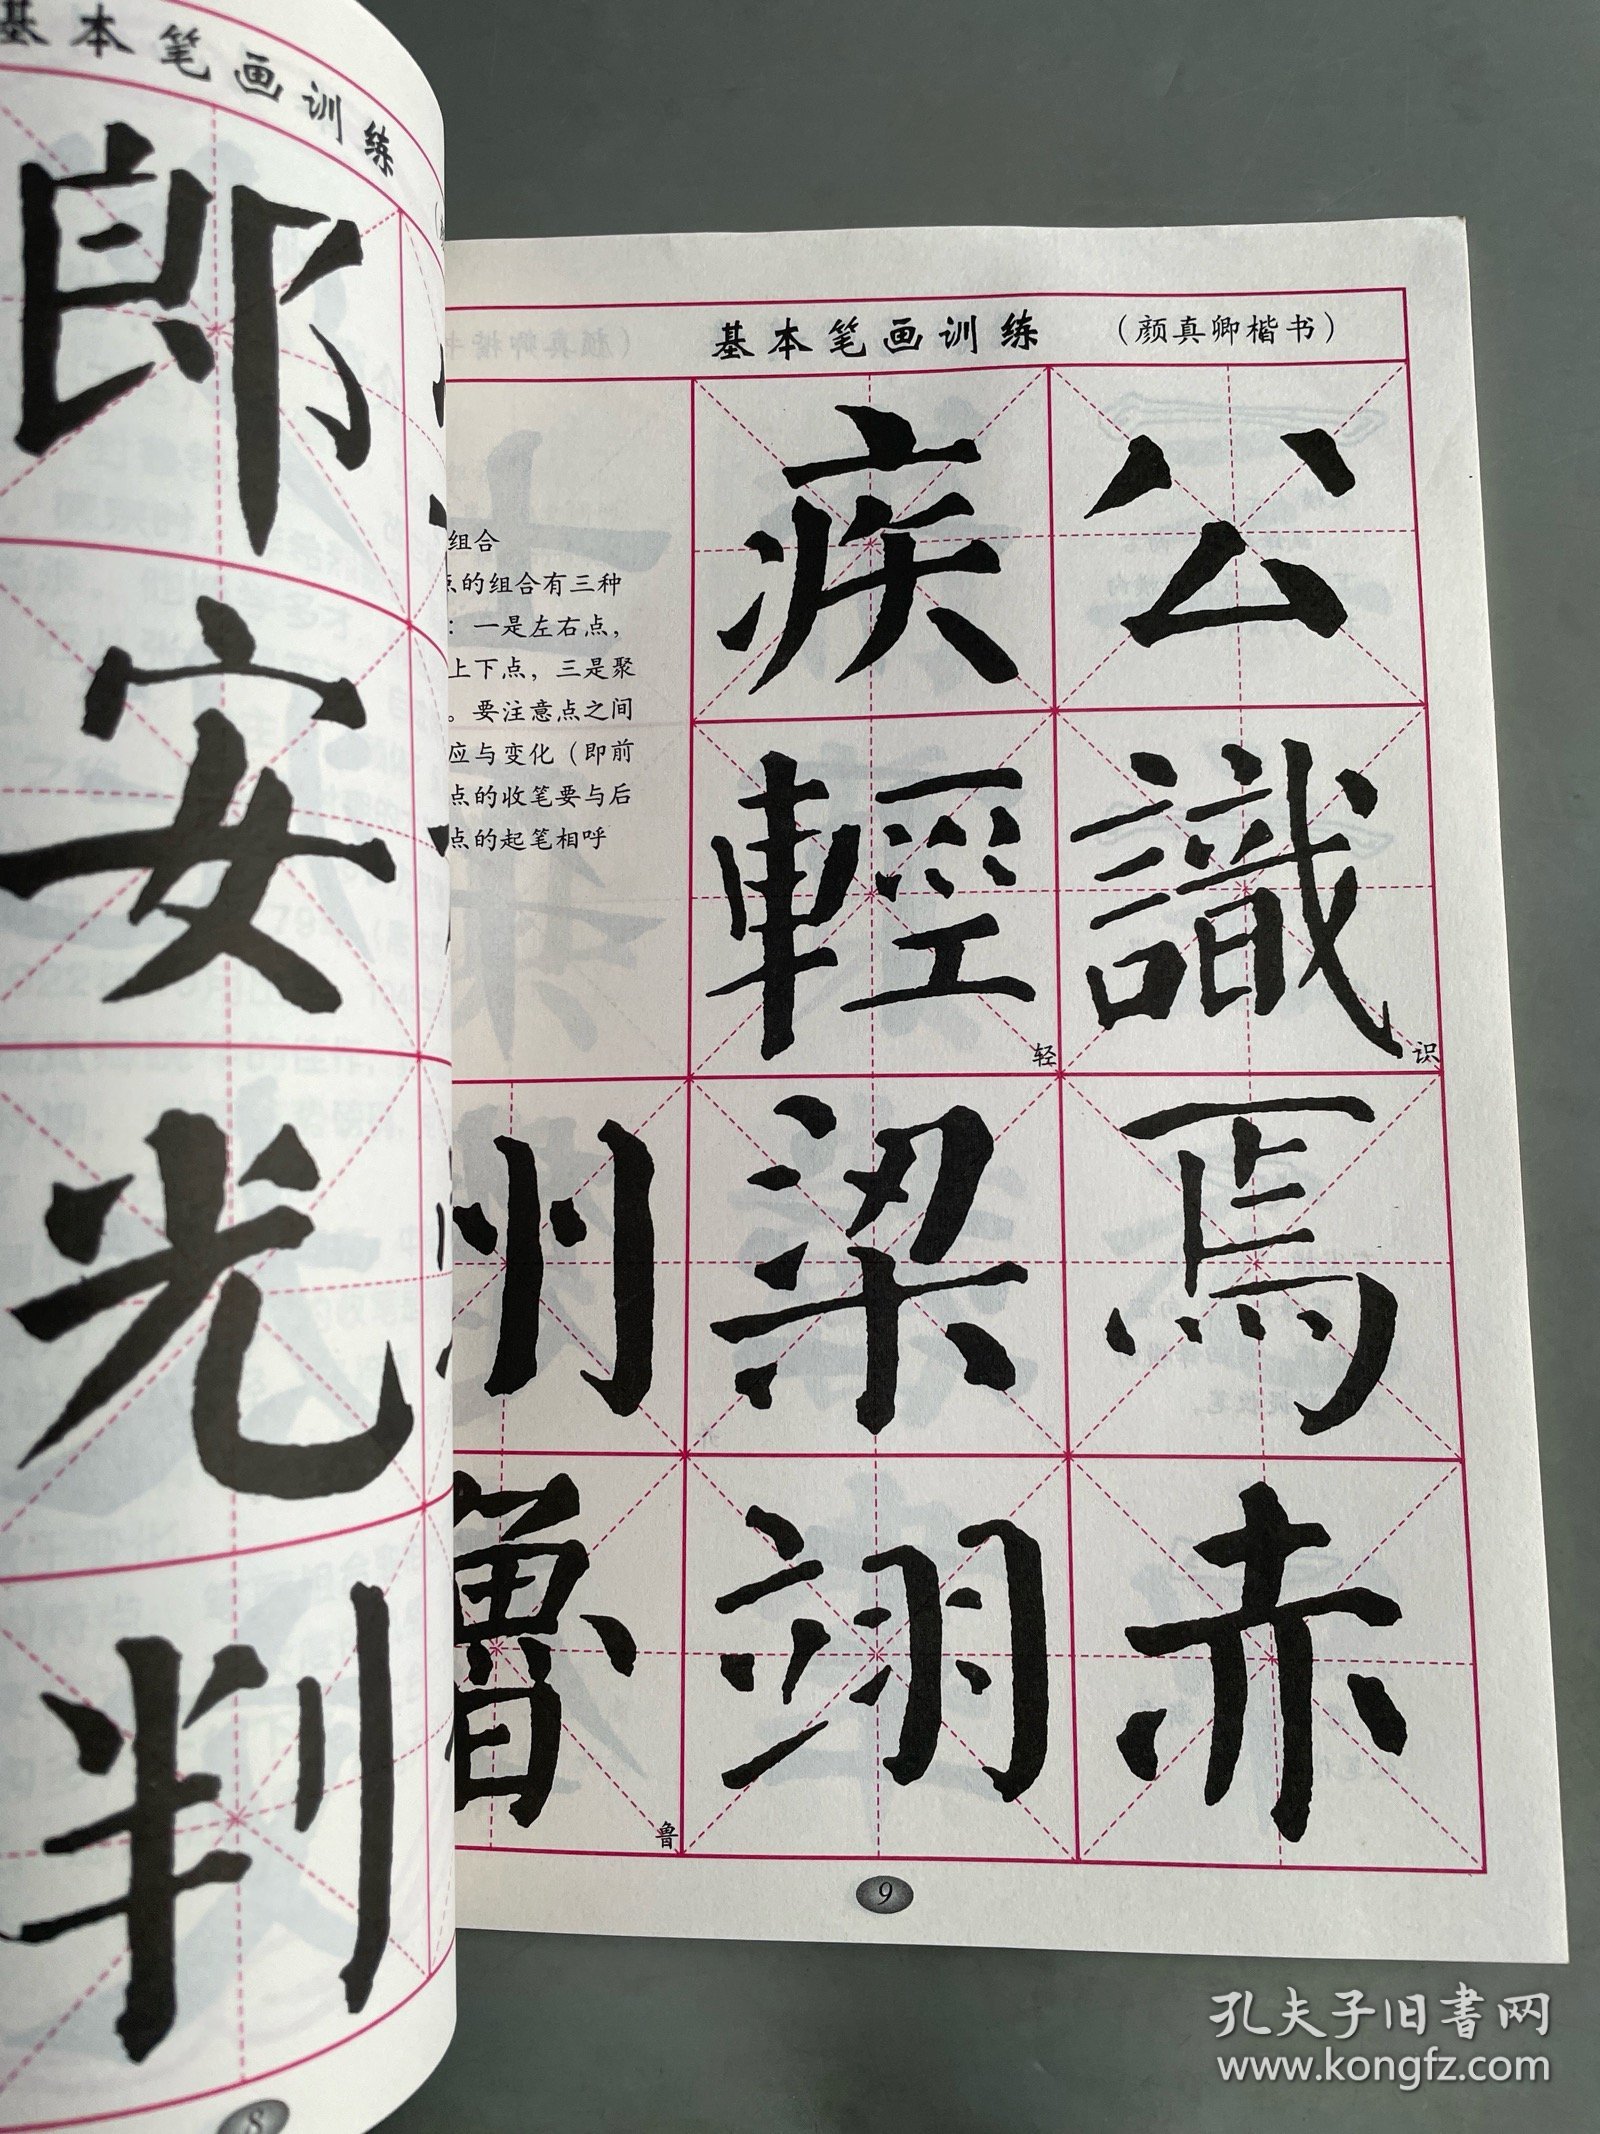 基本笔画训练
郎
安
光
判
8
基本笔画训练 （颜真卿楷书）
公
識
识
焉
赤
疾
輕
轻
梁
翊
组合
点的组合有三种
：一是左右点，
上下点，三是聚
。要注意点之间
应与变化（即前
点的收笔要与后
点的起笔相呼
州
魯
鲁
9
孔夫子旧书网
www.kongfz.com